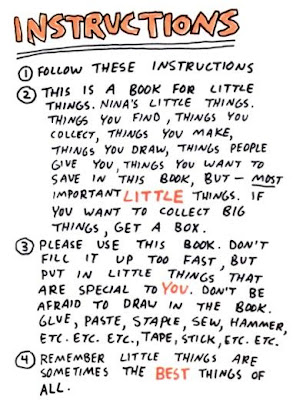 INSTRUCTIONS
① FOLLOW THESE INSTRUCTIONS
② THIS IS A BOOK FOR LITTLE
THINGS. NINA'S LITTLE THINGS.
THINGS YOU FIND, THINGS YOU
COLLECT, THINGS YOU MAKE,
THINGS YOU DRAW, THINGS PEOPLE
GIVE YOU, THINGS YOU WANT TO
SAVE IN THIS BOOK, BUT – MOST
IMPORTANT LITTLE THINGS. IF
YOU WANT TO COLLECT BIG
THINGS, GET A BOX.
③ PLEASE USE THIS BOOK. DON'T
FILL IT UP TOO FAST, BUT
PUT IN LITTLE THINGS THAT
ARE SPECIAL TO YOU. DON'T BE
AFRAID TO DRAW IN THE BOOK.
GLUE, PASTE, STAPLE, SEW, HAMMER,
ETC. ETC. ETC., TAPE, STICK, ETC. ETC.
④ REMEMBER LITTLE THINGS ARE
SOMETIMES THE BEST THINGS OF
ALL.